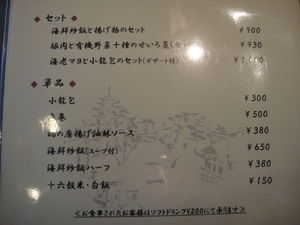 ◆ セット ◆
海鮮炒飯と揚げ物のセット ¥900
豚肉と有機野菜十種のせいろ蒸しセット ¥930
海老マヨと小龍包のセット(デザート付)
◆ 単品 ◆
小龍包 ¥300
巻 ¥500
の唐揚げ油淋ソース ¥380
海鮮炒飯(スープ付) ¥650
海鮮炒飯ハーフ ¥380
十六穀米・白飯 ¥150
≪お食事されたお客様はソフトドリンク¥200にて承ります≫